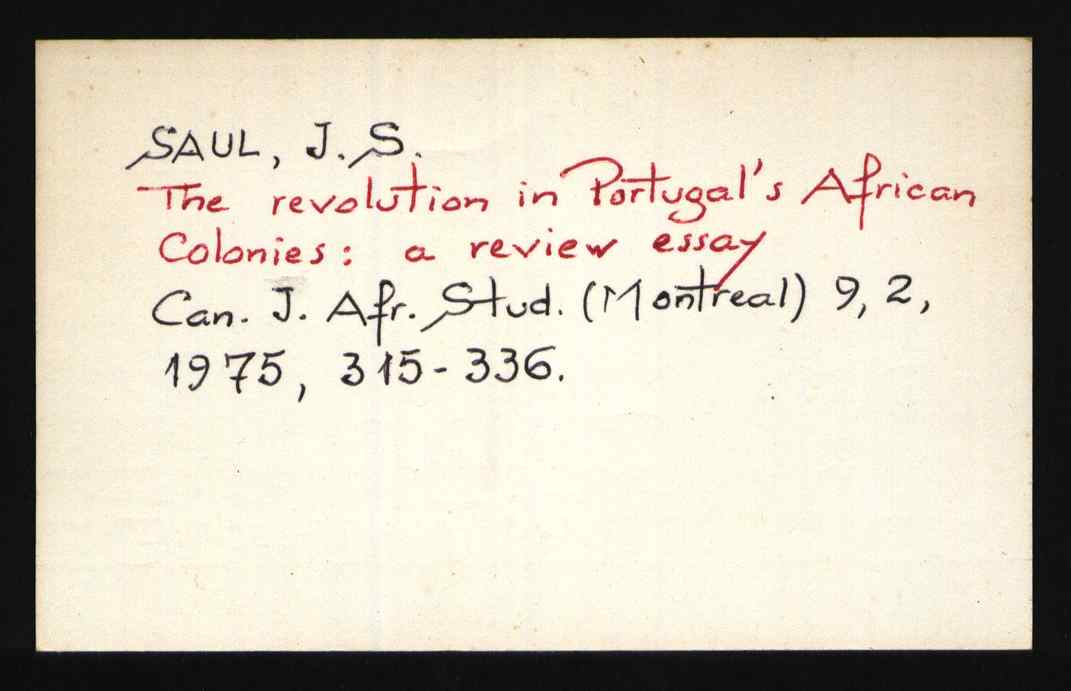 SAUL, J.S.
The revolution in Portugal's African
Colonies: a review essay
Can. J. Afr. Stud. (Montreal) 9, 2,
1975, 315-336.